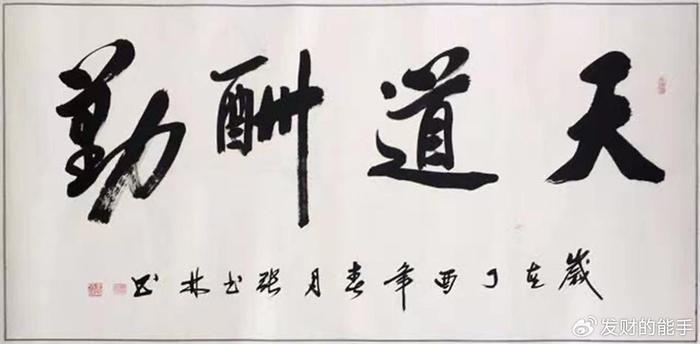 天道酬勤
歲在丁酉年春月张书林书
发财的能手